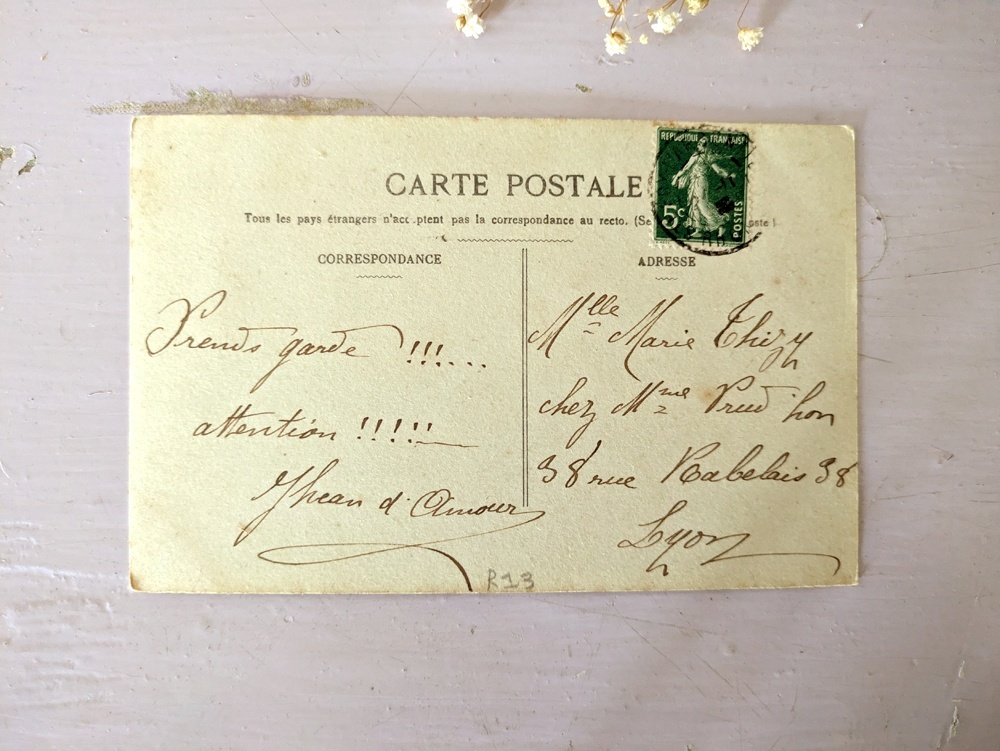 CARTE POSTALE
REPUBLIQUE FRANÇAISE
5c
POSTES
Tous les pays étrangers n'acceptent pas la correspondance au recto. (Se poste)
CORRESPONDANCE
ADRESSE
Prends garde !!!....
attention !!!!!
Jhean d'Amour
Mlle Marie Thizy
chez Mme Prud'hon
38 rue Rabelais 38
Lyon
R13